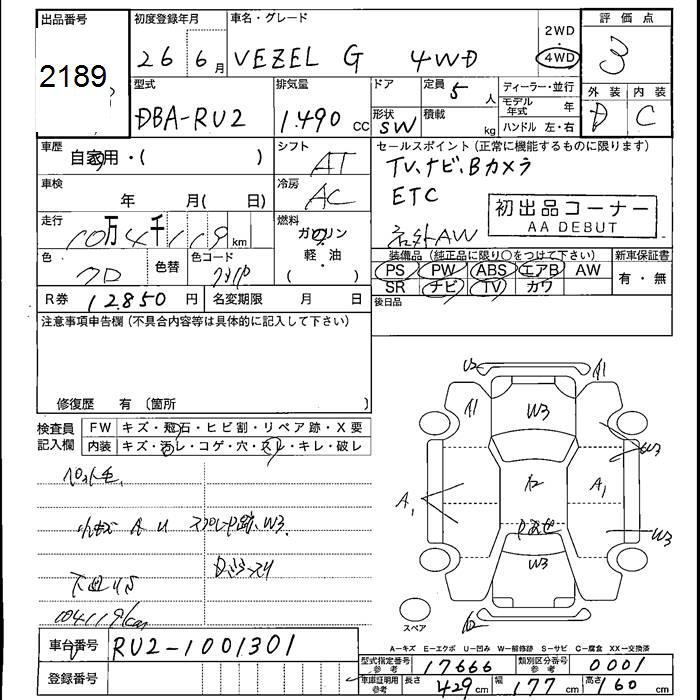 出品番号
2189
初度登録年月
26 6月
車名・グレード
VEZEL G 4WD
2WD
・
4WD
評価点
3
外装 内装
D C
型式
DBA-RU2
排気量
1.490 cc
ドア
形状
SW
定員
5 人
積載
kg
ディーラー・並行
モデル年式 年
ハンドル 左・右
車歴
自家用・( )
シフト
AT
セールスポイント(正常に機能するものに限ります)
TV、ナビ、Bカメラ
ETC
AW
初出品コーナー
AA DEBUT
車検
年 月( 日)
冷房
AC
走行
10万4千119 km
燃料
ガソリン
・
軽・油
( )
色
クロ
色替
色コード
装備品(純正品に限り○をつけて下さい)
PS PW ABS エアB AW
SR ナビ TV カワ
新車保証書
有・無
後日品
R券 12850 円
名変期限 月 日
注意事項申告欄(不具合内容等は具体的に記入して下さい)
修復歴 有 〔箇所 〕
検査員記入欄
FW キズ・飛石・ヒビ割・リペア跡・X要
内装 キズ・汚レ・コゲ・穴・スレ・キレ・破レ
A U W3.
下回りS
104119km
U2
A1
A1
W3
W3
A1
A1
W3
W3
スペア
A-キズ E-エクボ U-凹み W-補修跡 S-サビ C-腐食 XX-交換済
車台番号 RU2-1001301
登録番号
型式指定番号 参考 17666
類別区分番号 参考 0001
車庫証明用 参考 長さ 429cm 幅 177cm 高さ 160cm